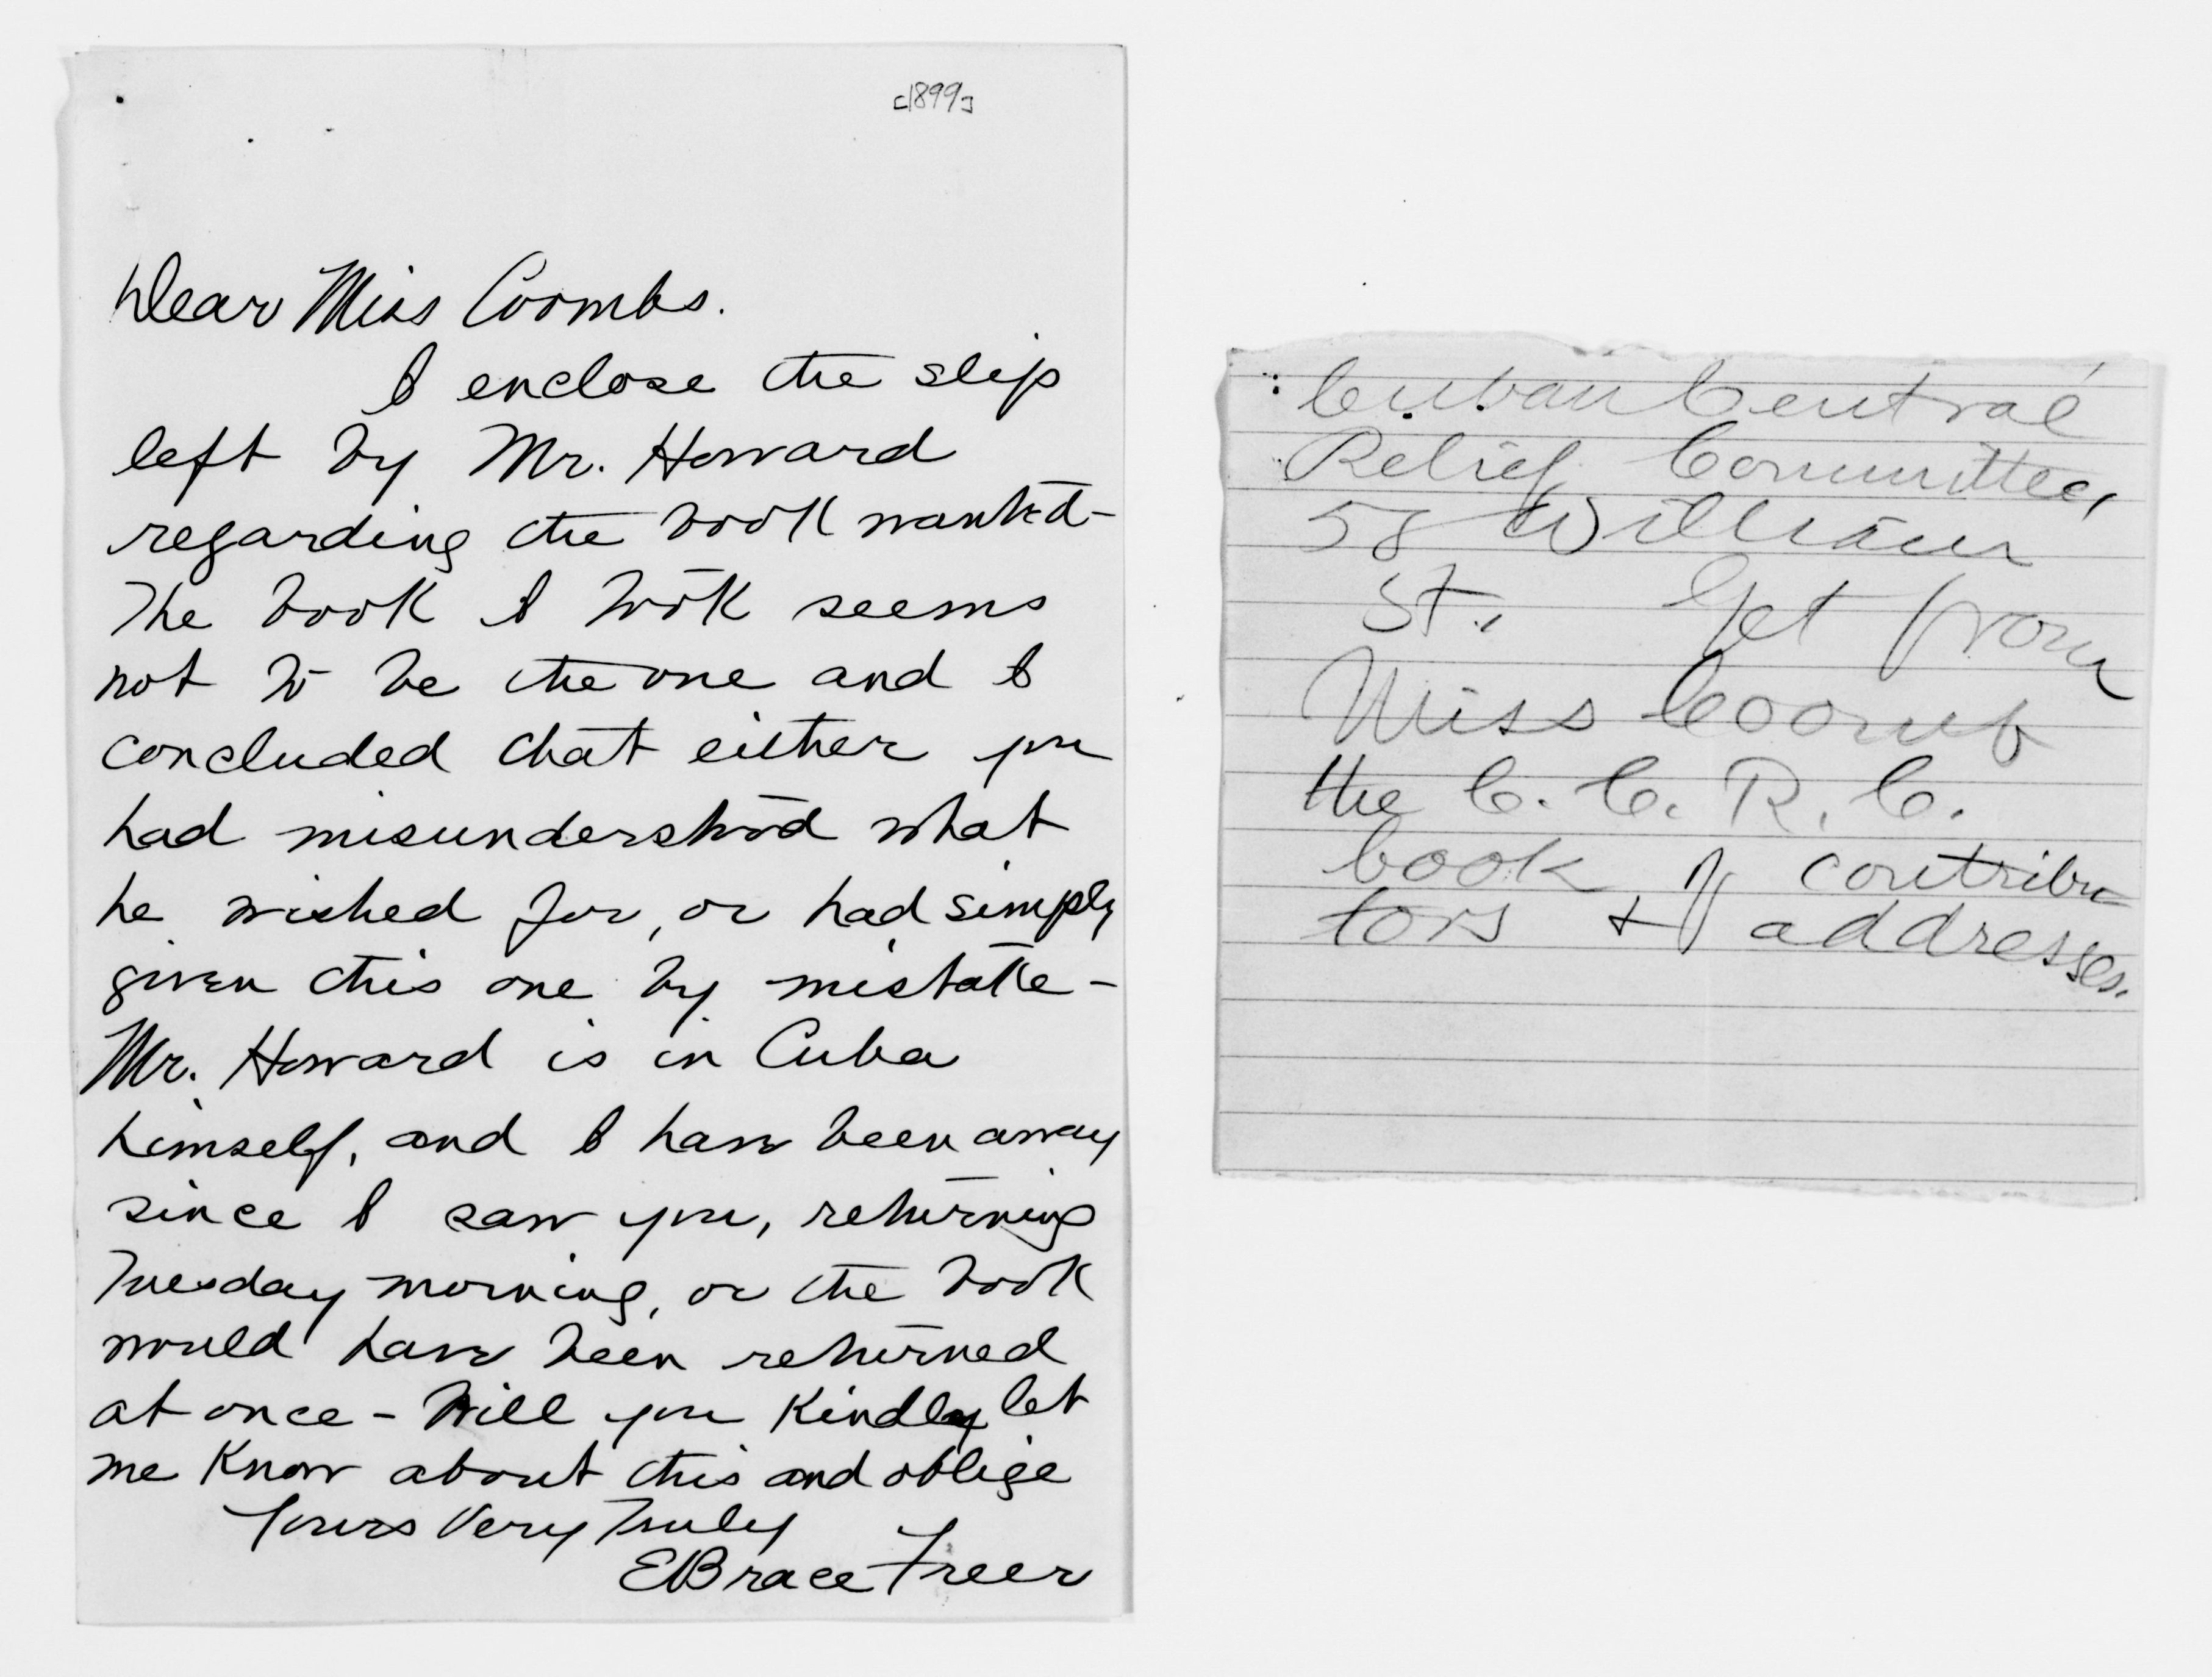 [1899]
Dear Miss Coombs.
I enclose the slip
left by Mr. Howard
regarding the book wanted-
The book I took seems
not to be the one and I
concluded that either you
had misunderstood what
he wished for, or had simply
given this one by mistake -
Mr. Howard is in Cuba
himself, and I have been away
since I saw you, returning
Tuesday morning, or the book
would have been returned
at once - Will you kindly let
me know about this and oblige
Yours Very Truly
E Brace Freer
Cuban Central
Relief Committee,
58 William
St., Get from
Miss Coomb
the C. C. R. C.
book of contribu
tors & addresses.